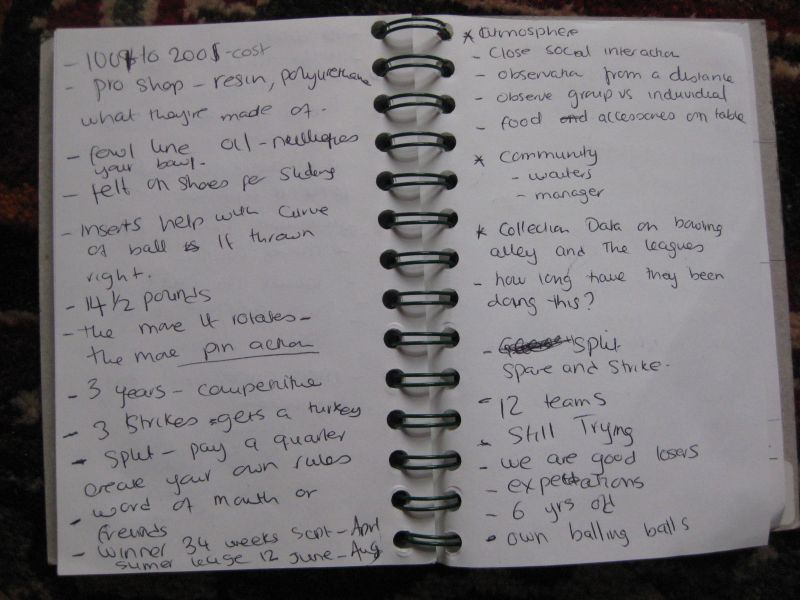 - 100$ to 200$ - cost
- pro shop - resin, polyurethane
what they're made of -
- fowl line oil -
your bowl.
- felt on shoes per sliding
- inserts help with curve
of ball if thrown
right.
- 14 1/2 pounds
- the more it rotates -
the more pin action
- 3 years - competitive
- 3 strikes = gets a turkey
- Split - pay a quarter
create your own rules
- word of mouth or
freinds
- winner 34 weeks Sept - April
sumer 12 June - Aug
* atmosphere
- Close social interaction
- observation from a distance
- observe group vs individual
- food and accessories on table
* Community
- waiters
- manager
* Collection Data on bowling
alley and The leagues
- how long have they been
doing this?
- split
spare and strike.
- 12 teams
- Still Trying
- we are good losers
- expectations
- 6 yrs old
- own balling balls